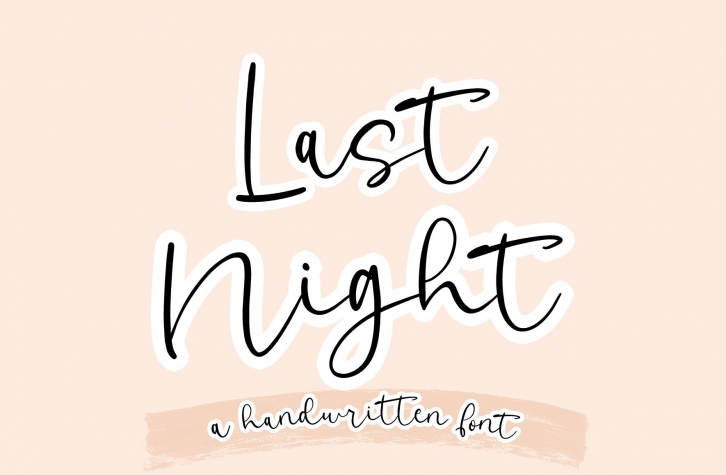 Last
Night
a handwritten font